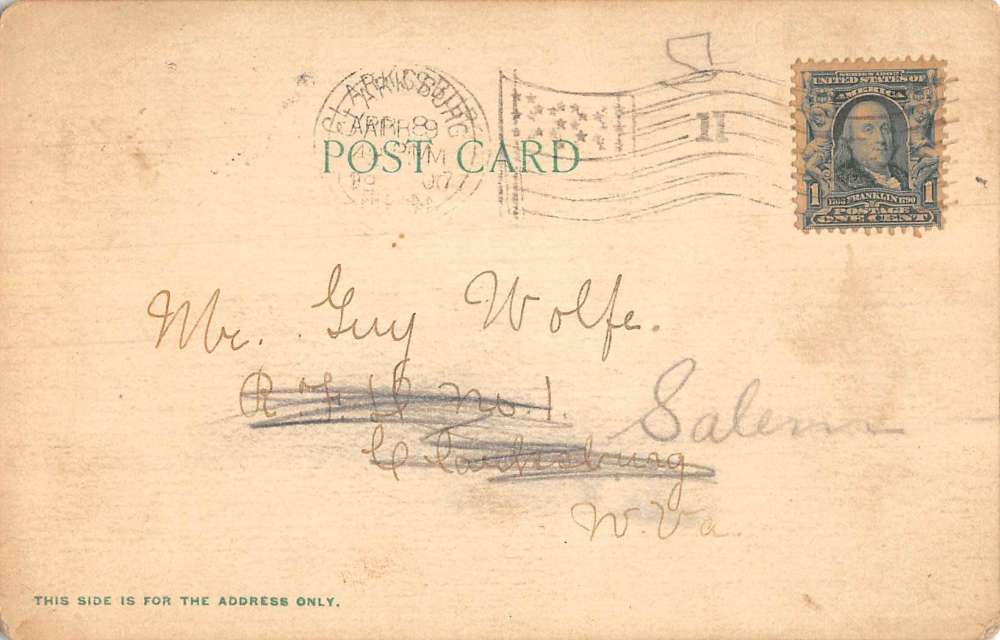 CLARKSBURG
POST CARD
11
SERIES 1902
UNITED STATES OF
AMERICA
1 1
1706 FRANKLIN 1790
POSTAGE
ONE CENT
Mr. Guy Wolfe.
R F D No. 1.
Salem
Clarksburg
W. Va.
THIS SIDE IS FOR THE ADDRESS ONLY.